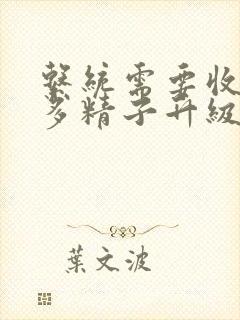 繫統需要收
多精子升級
葉文波